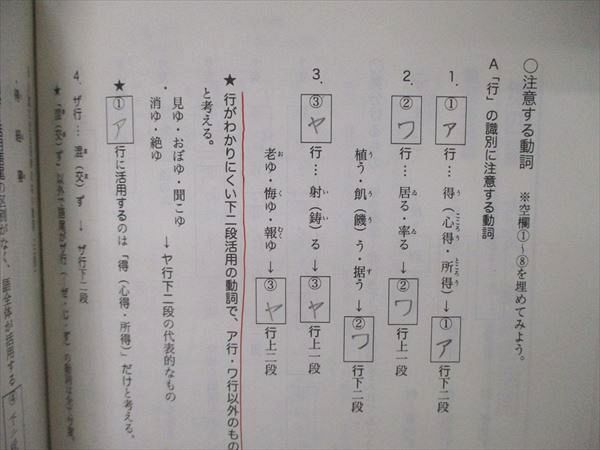 ○注意する動詞　※空欄①~⑧を埋めてみよう。
A「行」の識別に注意する動詞
1. ①ア行…得（心得・所得）→①ア行下二段
う　こころう　ところう
2. ②ワ行…居る・率る→②ワ行上一段
ゐ　ゐ
植う・飢（饑）う・据う→②ワ行下二段
う　う　す
3. ③ヤ行…射（鋳）る→③ヤ行上一段
い　い
老ゆ・悔ゆ・報ゆ→③ヤ行上二段
お　く　むく
★行がわかりにくい下二段活用の動詞で、ア行・ワ行以外のもの
と考える。
・見ゆ・おぼゆ・聞こゆ
消ゆ・絶ゆ　→ヤ行下二段の代表的なもの
★①ア行に活用するのは「得（心得・所得）」だけと考える。
4. ザ行…混（交）ず→ザ行下二段
ま